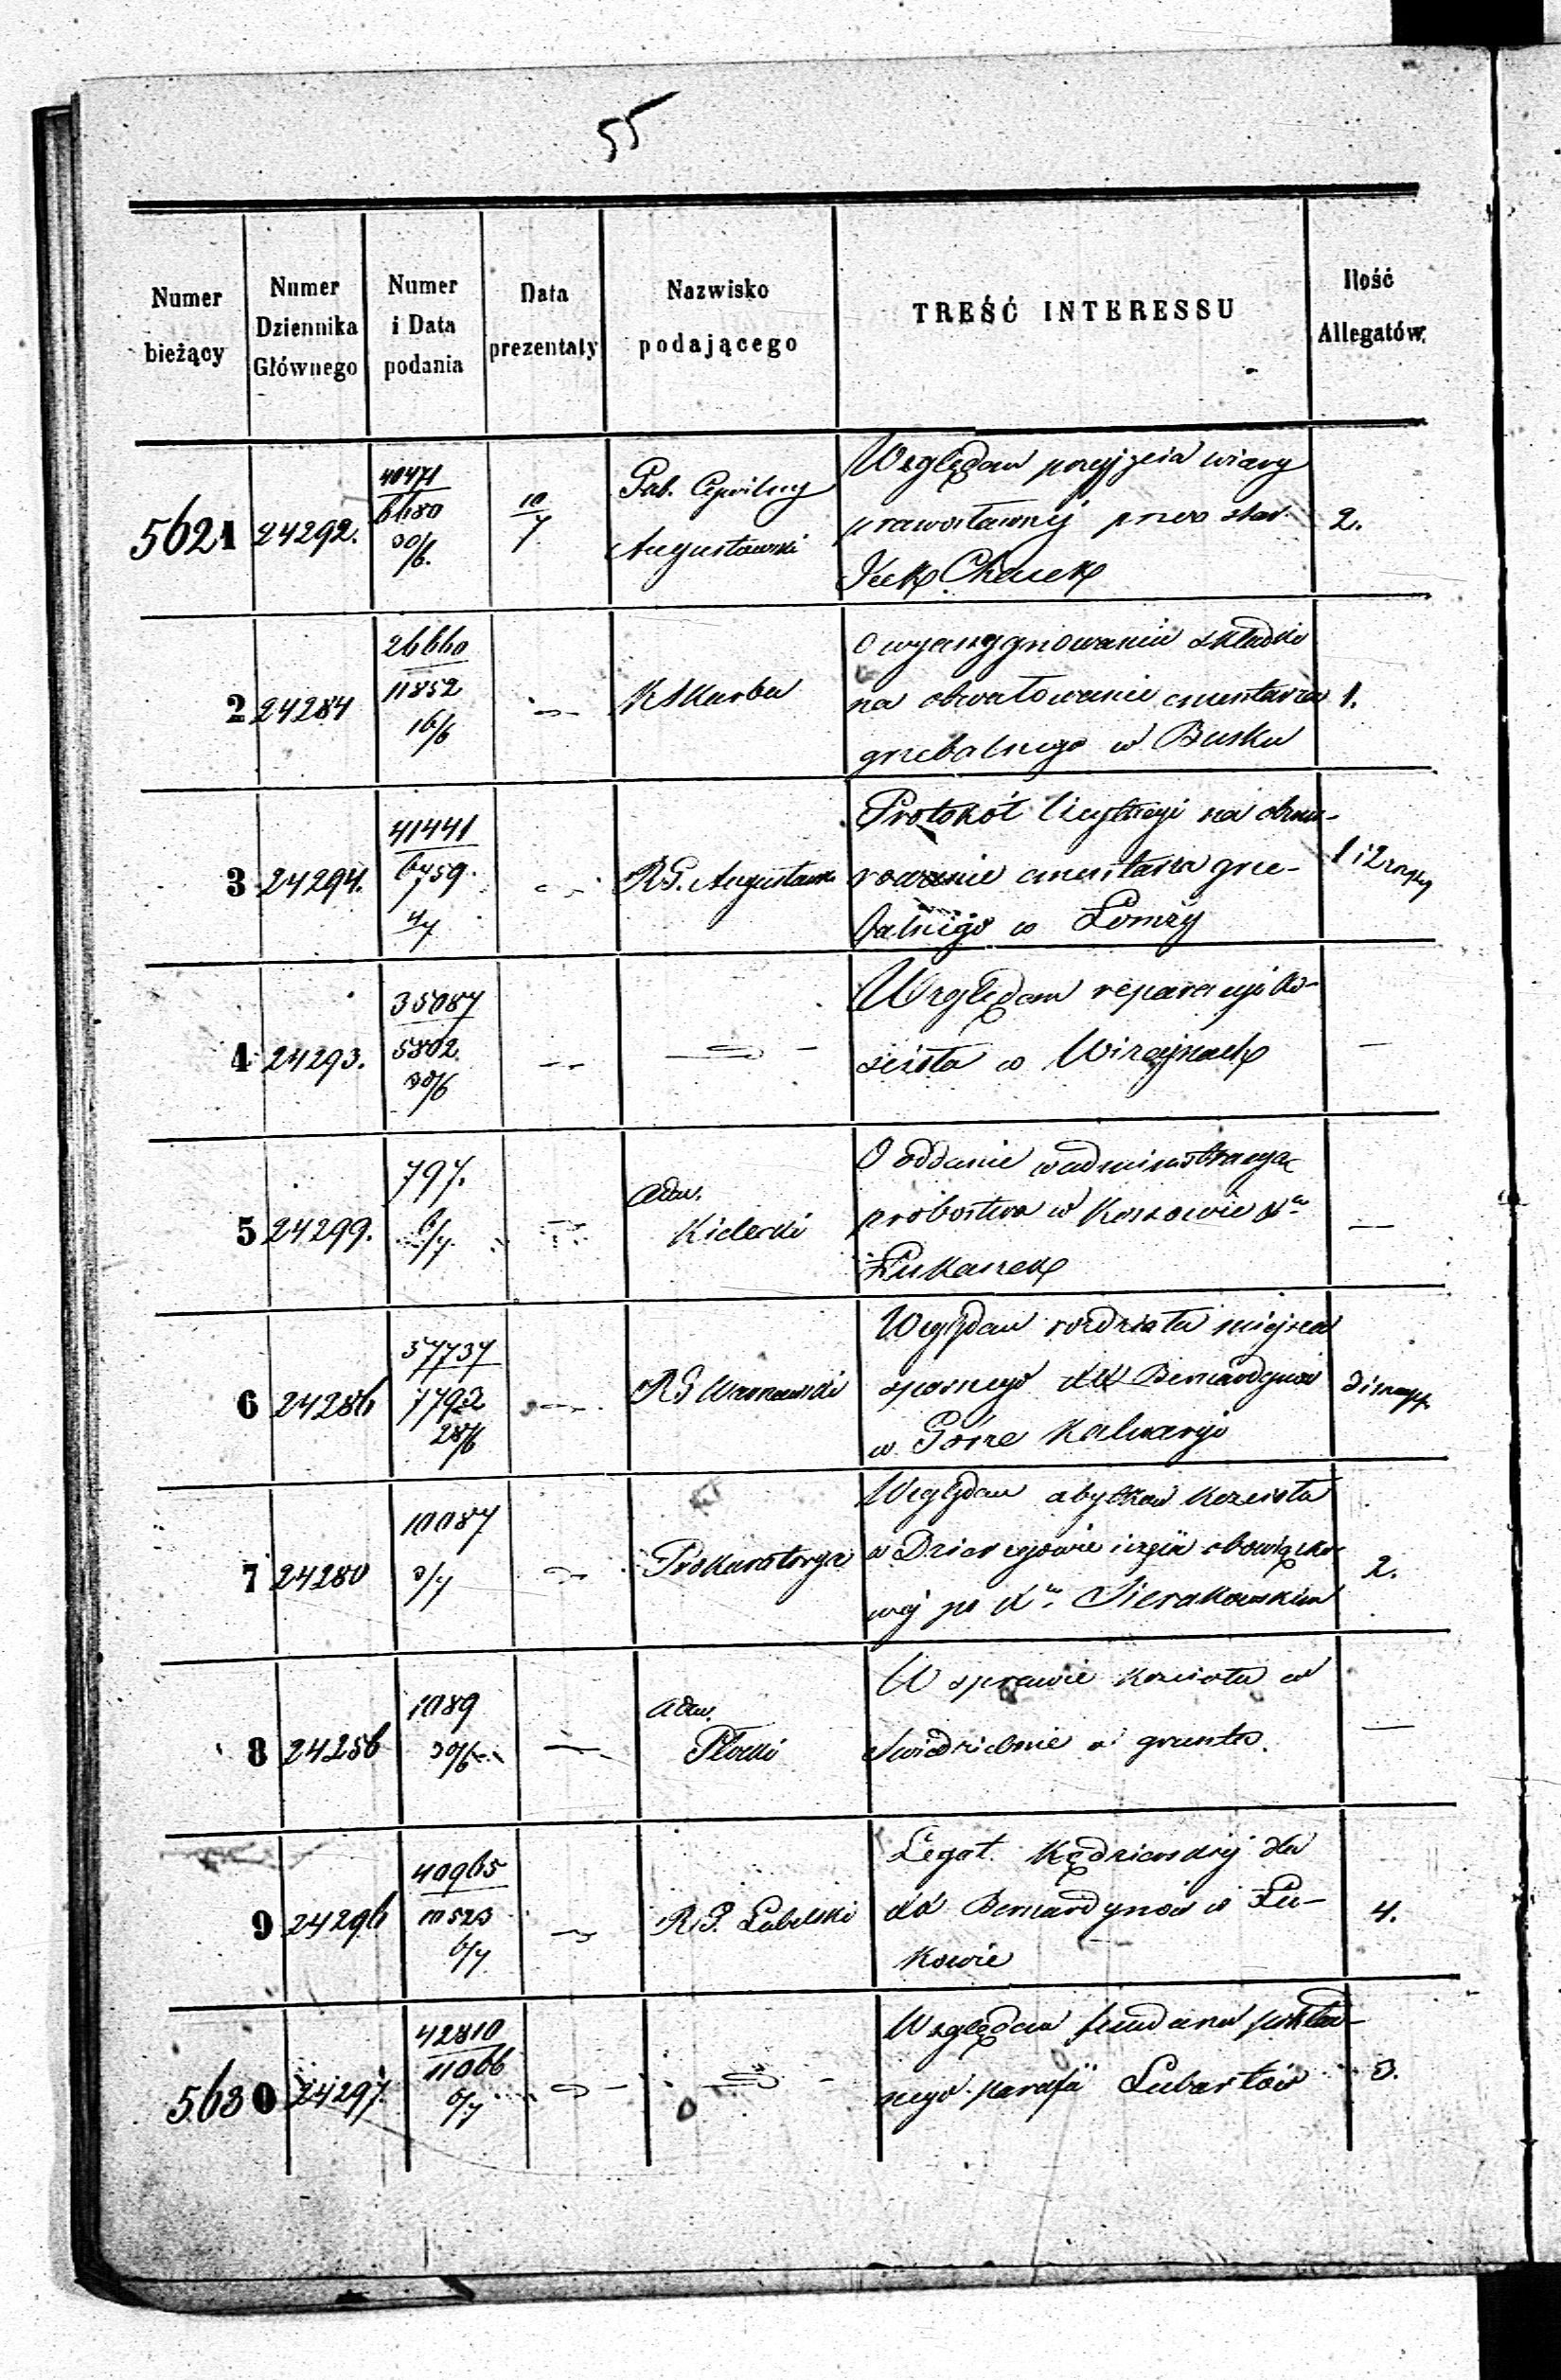 55
Numer bieżący
Numer Dziennika Głównego
Numer i Data podania
Data prezentaty
Nazwisko podającego
TREŚĆ INTERESSU
Ilość Allegatów.
5621 24292. 40471 6680 30/6. 10/7 Gub. Cywilny Augustowski
Względem przyjęcia wiary
prawosławnej przez star.
2.
2 24284 26660 11852 16/6 KSkarbu
O wyasygnowanie składki
na obwałowanie cmentarza 1.
grzebalnego w Busku
3 24294. 41441 6759. 4/7 R.G. Augustows.
Protokół licytacyi na obmu-
rowanie cmentarza grze-
balnego w Łomży
4 24293. 35087 5802. 30/6
Względem reparacyi ko-
ścioła w Wizajnach
5 24299. 797. 6/7 Adm. Kielecki
O oddanie w administracyą
probostwa w Koszowie Xu
6 24286 57737 7792 28/6 RG Warszawski
Względem rozdziału miejsca
spornego XX Bernardynów
w Górze Kalwaryi
7 24280 10087 3/7 Prokuratorya
Względem
w
wej po Xu. Sierakowskim
2.
8 24256 1089 30/6 Adm. Płocki
W sprawie kościoła w
Świedziebnie o grunta.
9 24296 40965 10523 6/7 R.G. Lubelski
Legat. Kędzierskiej dla
XX Bernardynów w Łu-
kowie
4.
5630 24297. 42810 11066 6/7
Względem fundum pokład-
nego parafii Lubartów
3.